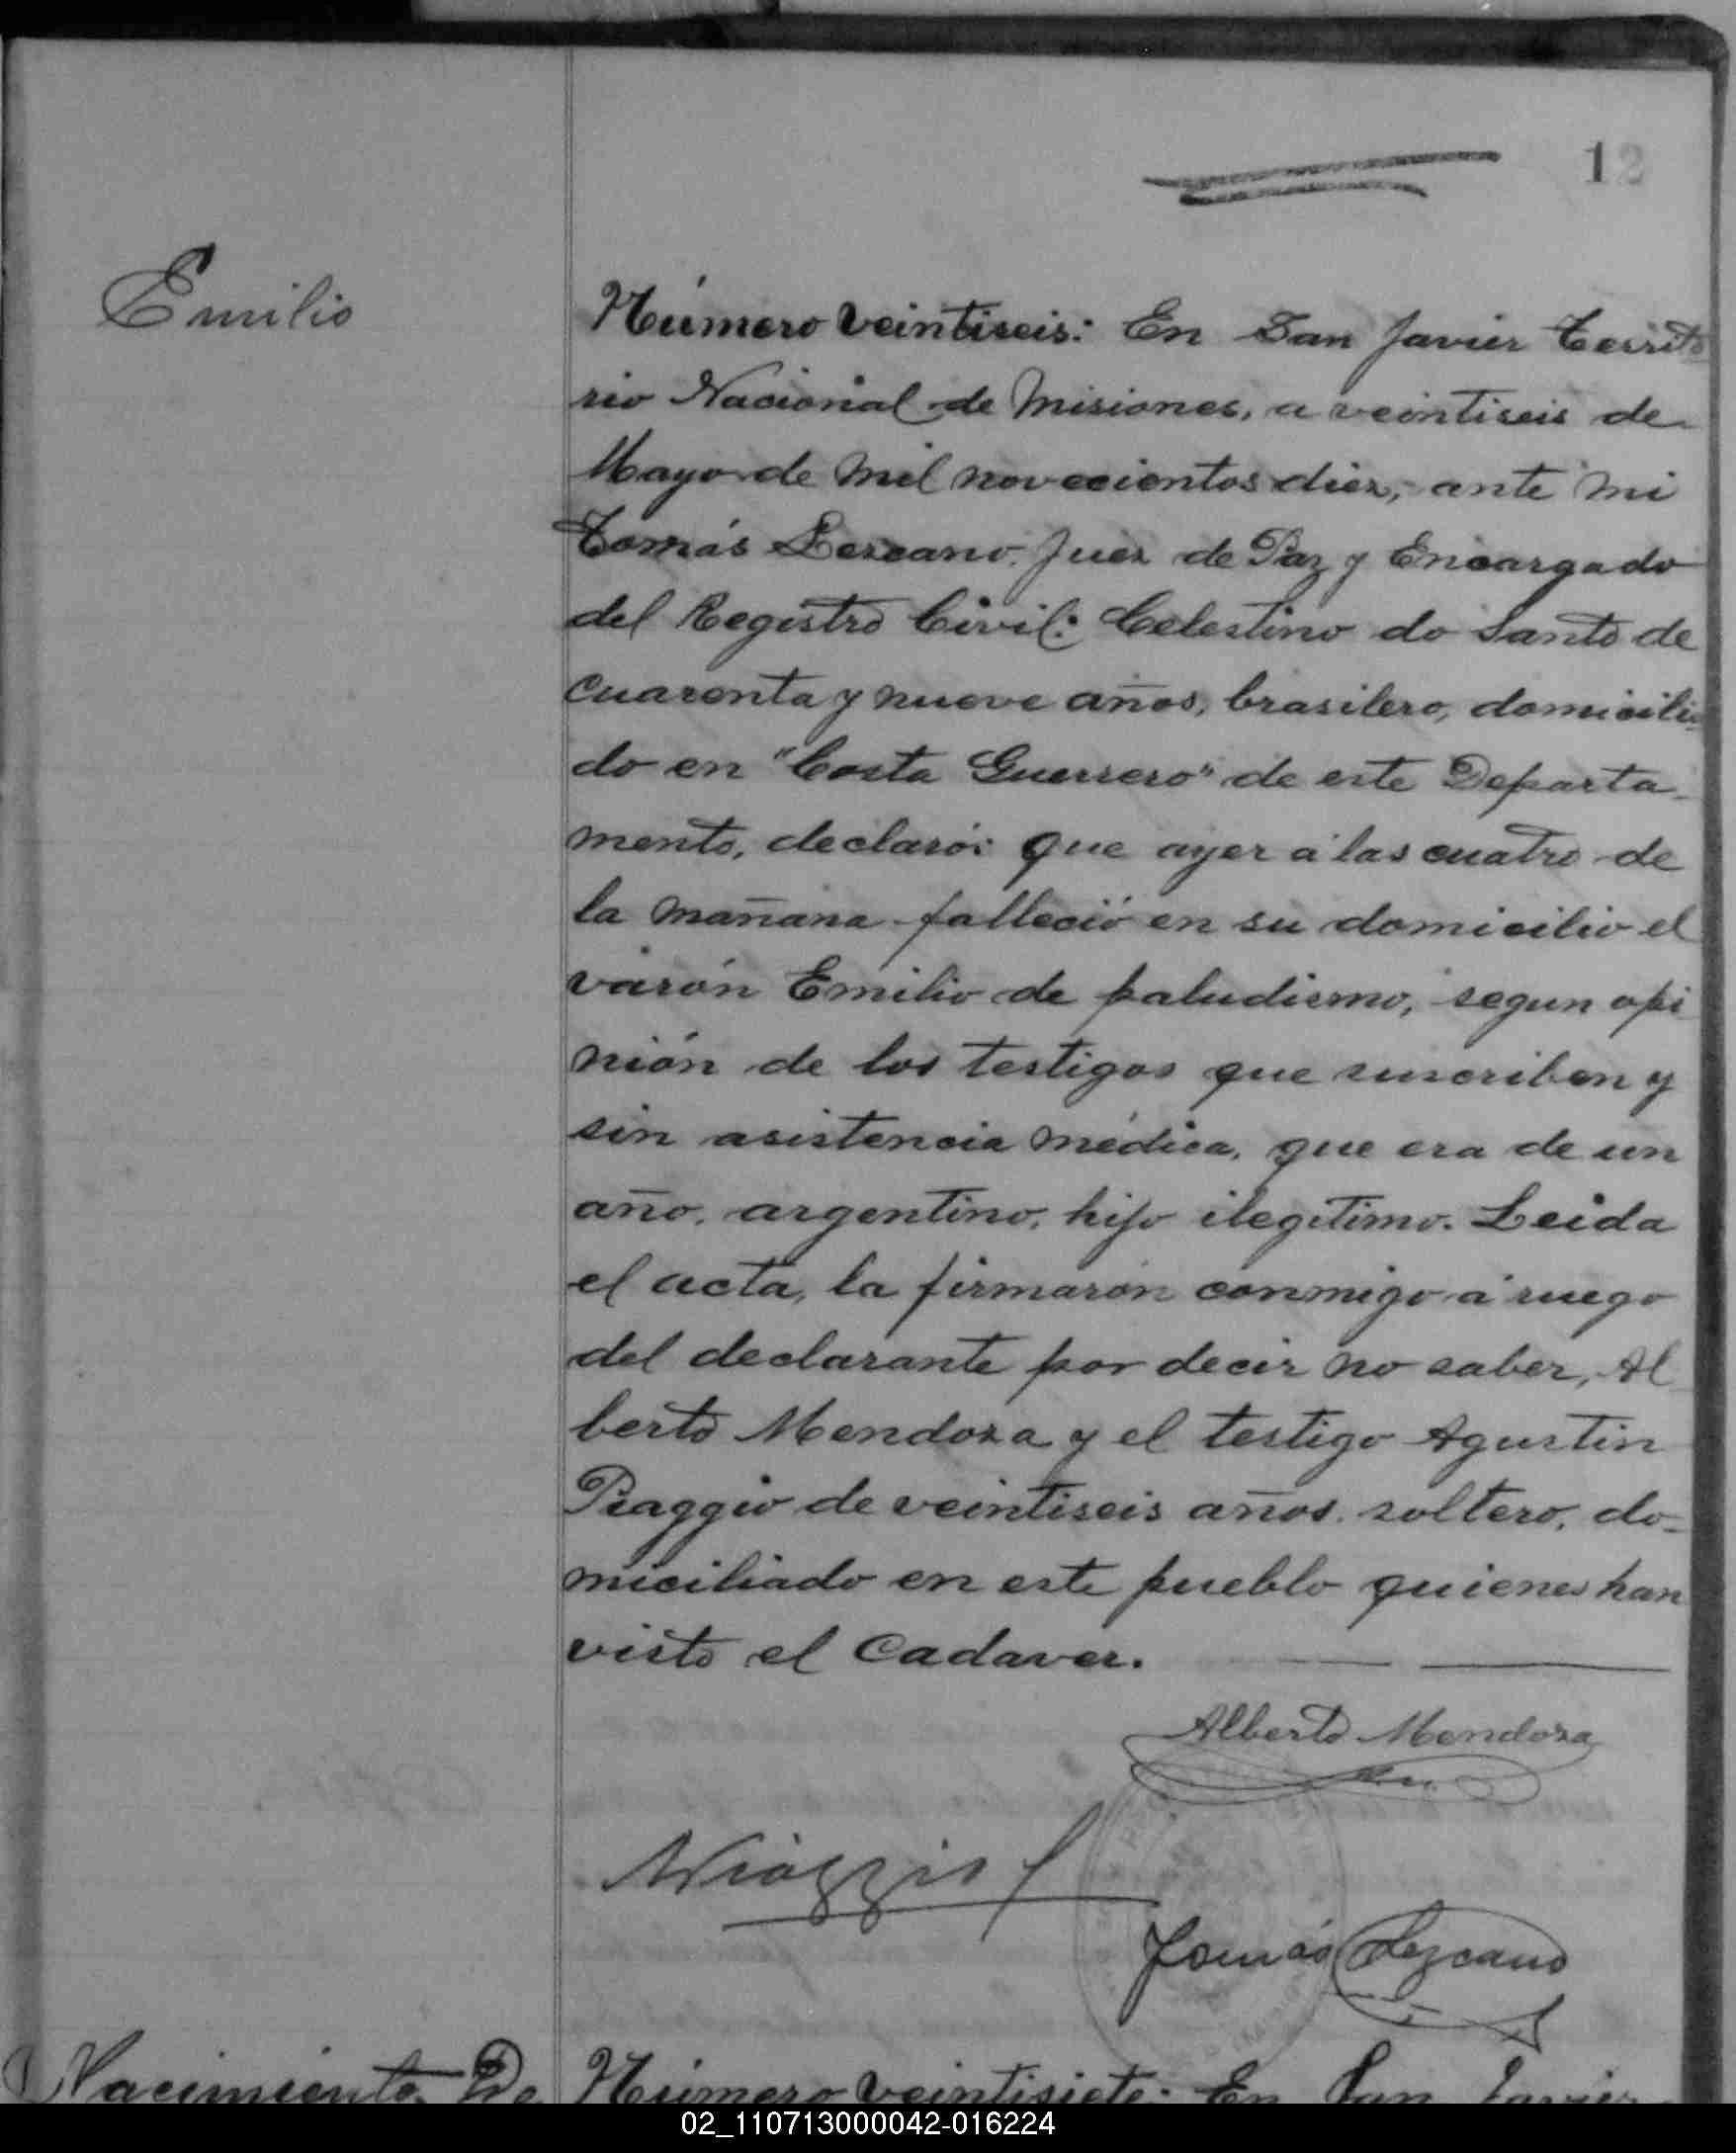 12
Emilio
Número veintiseis: En San Javier Territo
rio Nacional de Misiones, a veintiseis de
Mayo de mil novecientos diez, ante mi
Tomás Lezcano. Juez de Paz y Encargado
del Registro Civil: Celestino do Santo de
cuarenta y nueve años, brasilero, domicilia
do en "Costa Guerrero" de este Departa-
mento, declaró: que ayer á las cuatro de
la mañana falleció en su domicilio el
varón Emilio de paludismo, segun opi
nión de los testigos que suscriben y
sin asistencia médica, que era de un
año, argentino, hijo ilegitimo. Leida
el acta, la firmaron conmigo á ruego
del declarante por decir no saber, Al
berto Mendoza y el testigo Agustin
Piaggio de veintiseis años, soltero, do-
miciliado en este pueblo quienes han
visto el cadaver.
Alberto Mendoza
Piaggio
Tomás Lezcano
Nacimiento De
Número veintisiete: En San Javier
02_110713000042-016224